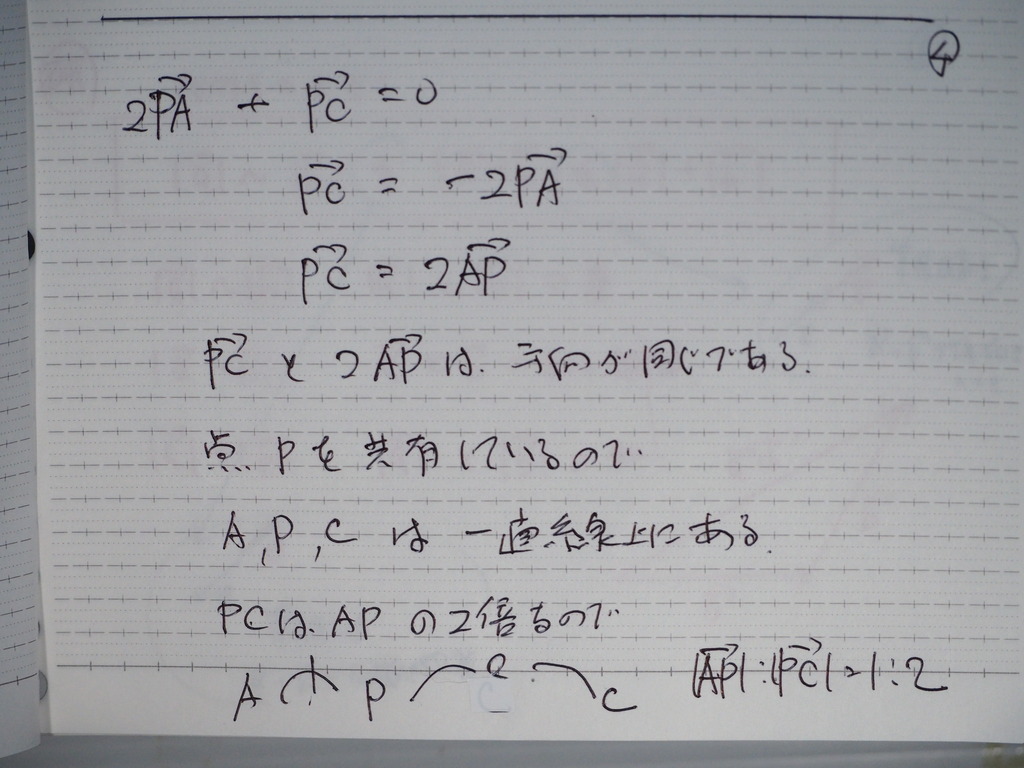 ④
2PA→ + PC→ = 0
PC→ = -2PA→
PC→ = 2AP→
PC→ と 2AP→ は. 方向が同じである.
点 P を 共有しているので
A, P, C は 一直線上にある.
PCは AP の2倍なので
A 1 P 2 C |AP→|:|PC→|=1:2